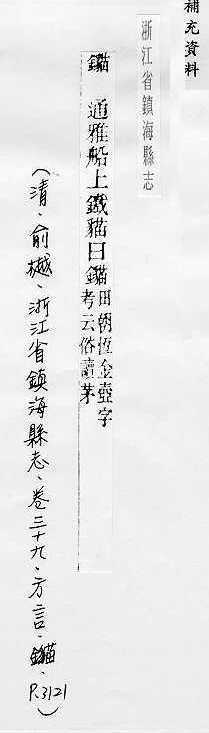 補充資料
浙江省鎮海縣志
鏂 通雅船上鐵貓曰鏂田朝恆金壺字
考云俗讀茅
(清．俞樾．浙江省鎮海縣志．卷三十九．方言．錨．P.3121)